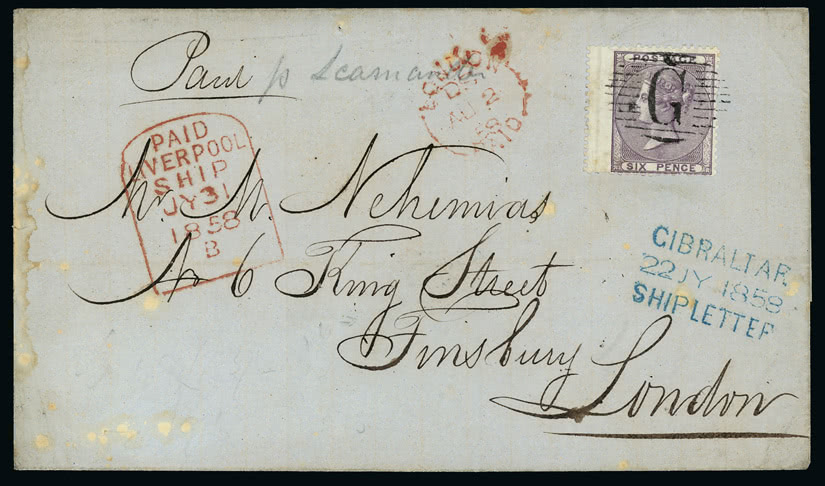 Paid p Scamander
LONDON
AU 2
58
PAID
POSTAGE
G
SIX PENCE
PAID
LIVERPOOL
SHIP
JY 31
1858
B
Mr. M. Nehemias
No 6 King Street
Finsbury
London
GIBRALTAR
22 JY 1858
SHIP LETTER